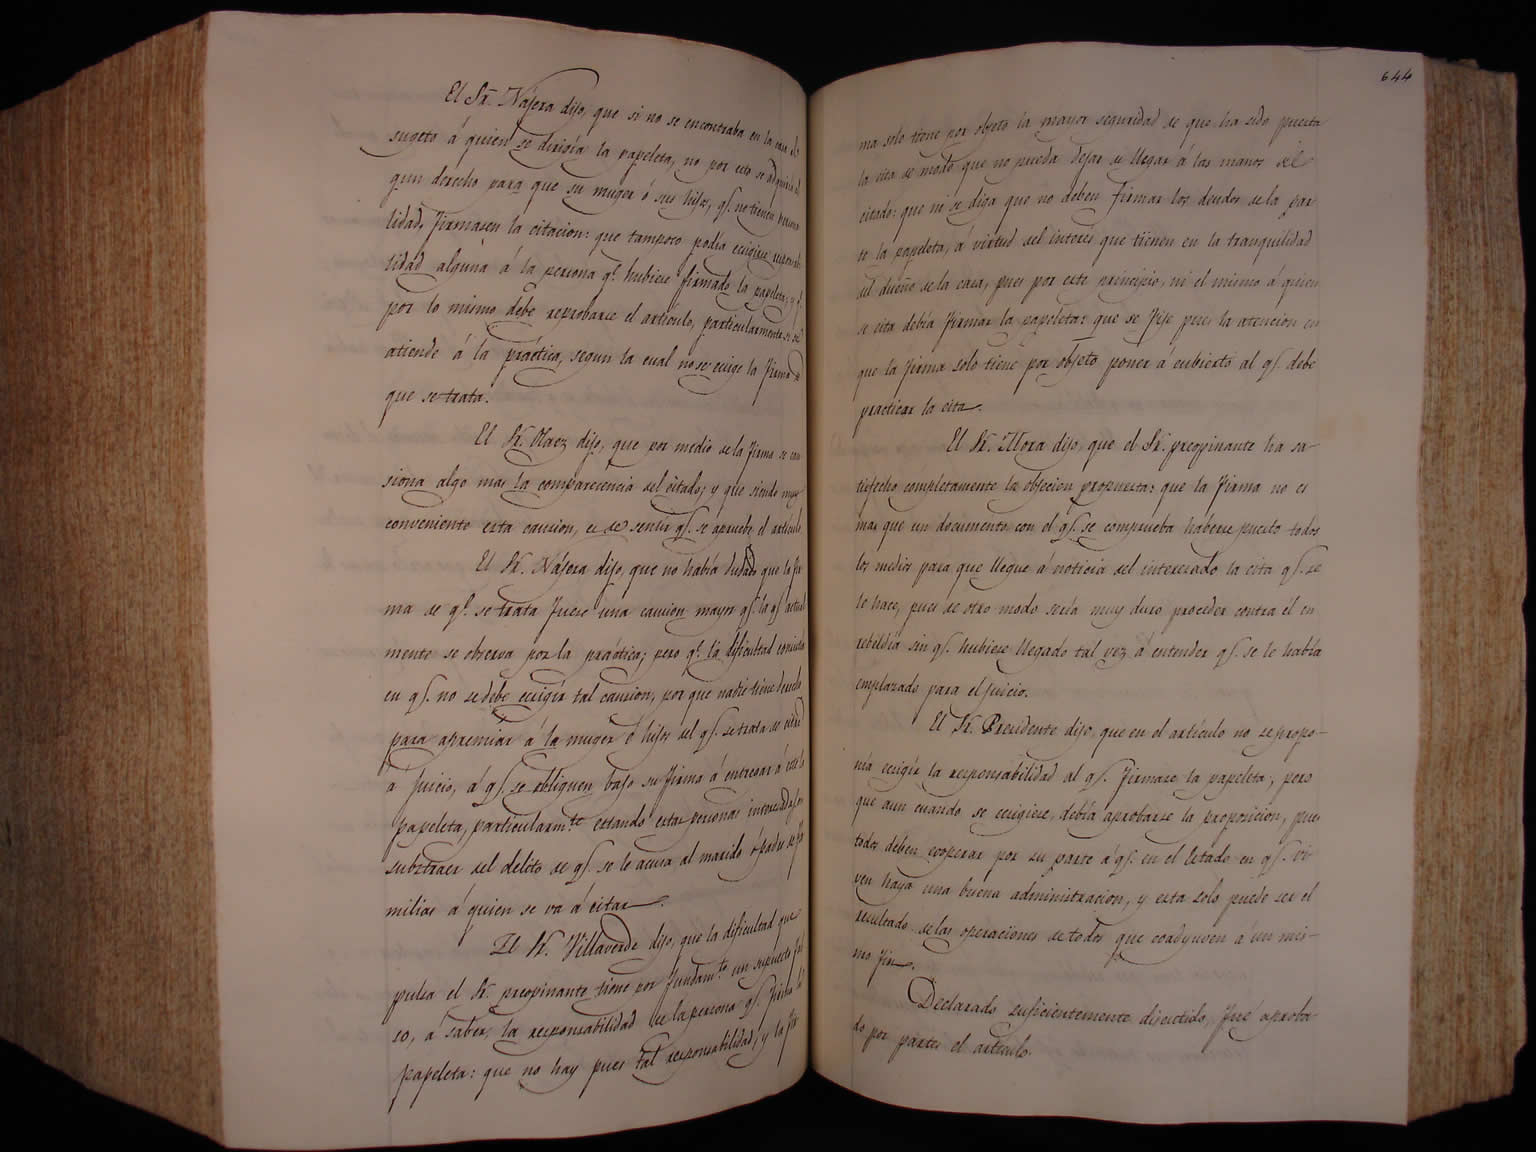 El Sr. Nájera dijo, que si no se encontraba en la casa el
sugeto á quien se dirigía la papeleta, no por esto se adquiría al
gun derecho para que su muger ó sus hijos, qe. no tienen persona
lidad, firmasen la citacion: que tampoco podía ecsigirse responsabi
lidad alguna á la persona qe. hubiese firmado la papeleta; y qe.
por lo mismo debe reprobarse el artículo, particularmente si se
atiende á la práctica, segun la cual no se ecsige la firma de
que se trata.
El Sr. Olaez dijo, que por medio de la firma se cau
siona algo mas la comparecencia del citado; y que siendo muy
conveniente esta caucion, es de sentir qe. se apruebe el artículo.
El Sr. Nájera dijo, que no había dudado que la fir
ma de qe. se trata fuese una caucion mayor qe. la qe. actual
mente se observa por la práctica; pero qe. la dificultad consiste
en qe. no se debe ecsigir tal caucion, por que nadie tiene derecho
para apremiar á la muger ó hijos del qe. se trata de citar
á juicio, á qe. se obliguen bajo su firma á entregar á este la
papeleta, particularmte. estando estas personas interesadas en
subztraer del delito de qe. se le acusa al marido ó padre de fa
milias á quien se va á citar.
El Sr. Villaverde dijo, que la dificultad que
pulsa el Sr. preopinante tiene por fundamto. un supuesto fal
so, á saber, la responsabilidad de la persona qe. firma la
papeleta: que no hay pues tal responsabilidad; y la fir
644
ma solo tiene por objeto la mayor seguridad de que ha sido puesta
la cita de modo que no pueda dejar de llegar á las manos del
citado: que ni se diga que no deben firmar los deudos de la par
te la papeleta, á virtud del interes que tienen en la tranquilidad
del dueño de la casa, pues por este principio, ni el mismo á quien
se cita debía firmar la papeleta: que se fije pues la atencion en
que la firma solo tiene por objeto poner á cubierto al qe. debe
practicar la cita.
El Sr. Mora dijo, que el Sr. preopinante ha sa-
tisfecho completamente la objecion propuesta: que la firma no es
mas que un documento con el qe. se comprueba haberse puesto todos
los medios para que llegue á noticia del interesado la cita qe. se
le hace, pues de otro modo sería muy duro proceder contra él en
rebeldía sin qe. hubiese llegado tal vez á entender qe. se le había
emplazado para el juicio.
El Sr. Presidente dijo, que en el artículo no se propo-
nía ecsigir la responsabilidad al qe. firmase la papeleta; pero
que aun cuando se ecsigiese, debía aprobarse la proposicion, pues
todos deben cooperar por su parte á qe. en el Estado en qe. vi-
ven haya una buena administracion, y esta solo puede ser el
resultado de las operaciones de todos que coadyuven á un mis-
mo fin.
Declarado suficientemente discutido, fué aproba-
do por partes el artículo.